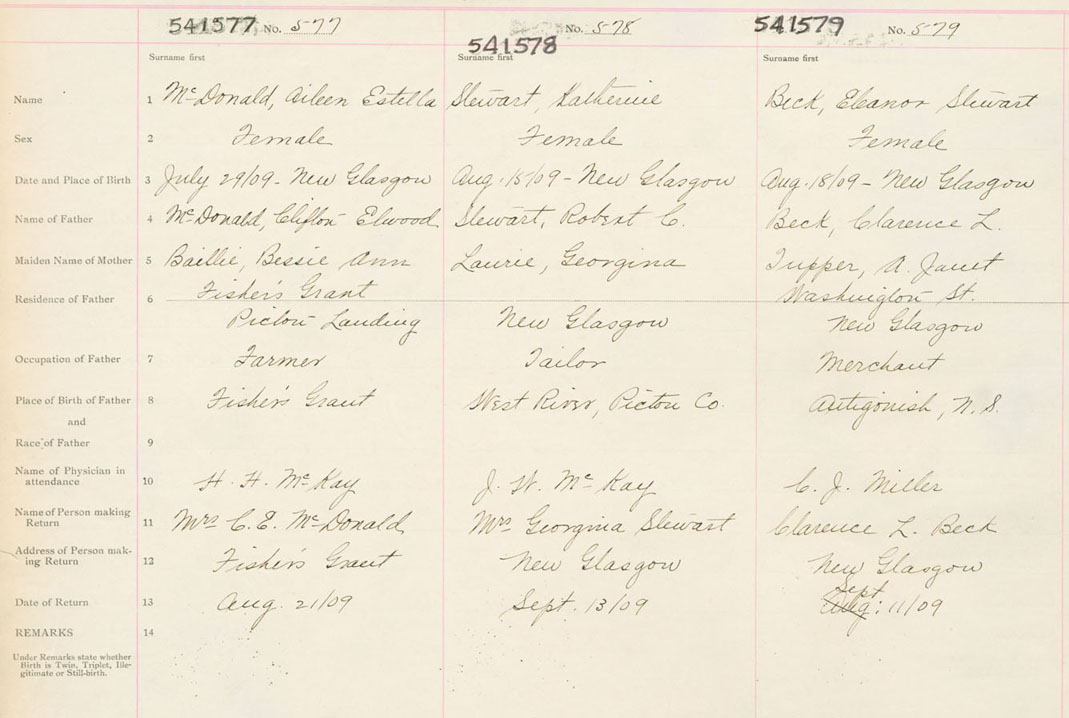 541577 No. 577
541578 No. 578
541579 No. 579
Surname first Surname first Surname first
Name 1 McDonald, Aileen Estella Stewart, Katherine Beck, Eleanor Stewart
Sex 2 Female Female Female
Date and Place of Birth 3 July 29/09 - New Glasgow Aug. 15/09 - New Glasgow Aug. 18/09 - New Glasgow
Name of Father 4 McDonald, Clifton Elwood Stewart, Robert C. Beck, Clarence L.
Maiden Name of Mother 5 Baillie, Bessie Ann Laurie, Georgina Tupper, A. Janet
Residence of Father 6 Fisher's Grant Washington St.
Pictou Landing New Glasgow New Glasgow
Occupation of Father 7 Farmer Tailor Merchant
Place of Birth of Father 8 Fisher's Grant West River, Pictou Co. Antigonish, N.S.
and
Race of Father 9
Name of Physician in
attendance 10 H. H. McKay J. W. McKay C. J. Miller
Name of Person making
Return 11 Mrs C. E. McDonald Mrs Georgina Stewart Clarence L. Beck
Address of Person mak-
ing Return 12 Fisher's Grant New Glasgow New Glasgow
Sept
Date of Return 13 Aug. 21/09 Sept. 13/09 Aug: 11/09
REMARKS 14
Under Remarks state whether
Birth is Twin, Triplet, Ille-
gitimate or Still-birth.